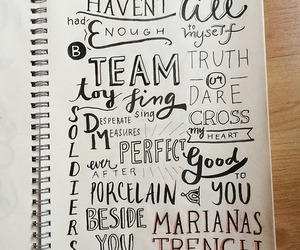 HAVENT
had ENOUGH
All
to myself
B TEAM
TRUTH
or
DARE
toy
SOLDIERS
Sing
sing
DESPERATE
MEASURES
CROSS
my HEART
PERFECT
ever
AFTER
Good
to
YOU
PORCELAIN
BESIDE
YOU
MARIANAS
TRENCH